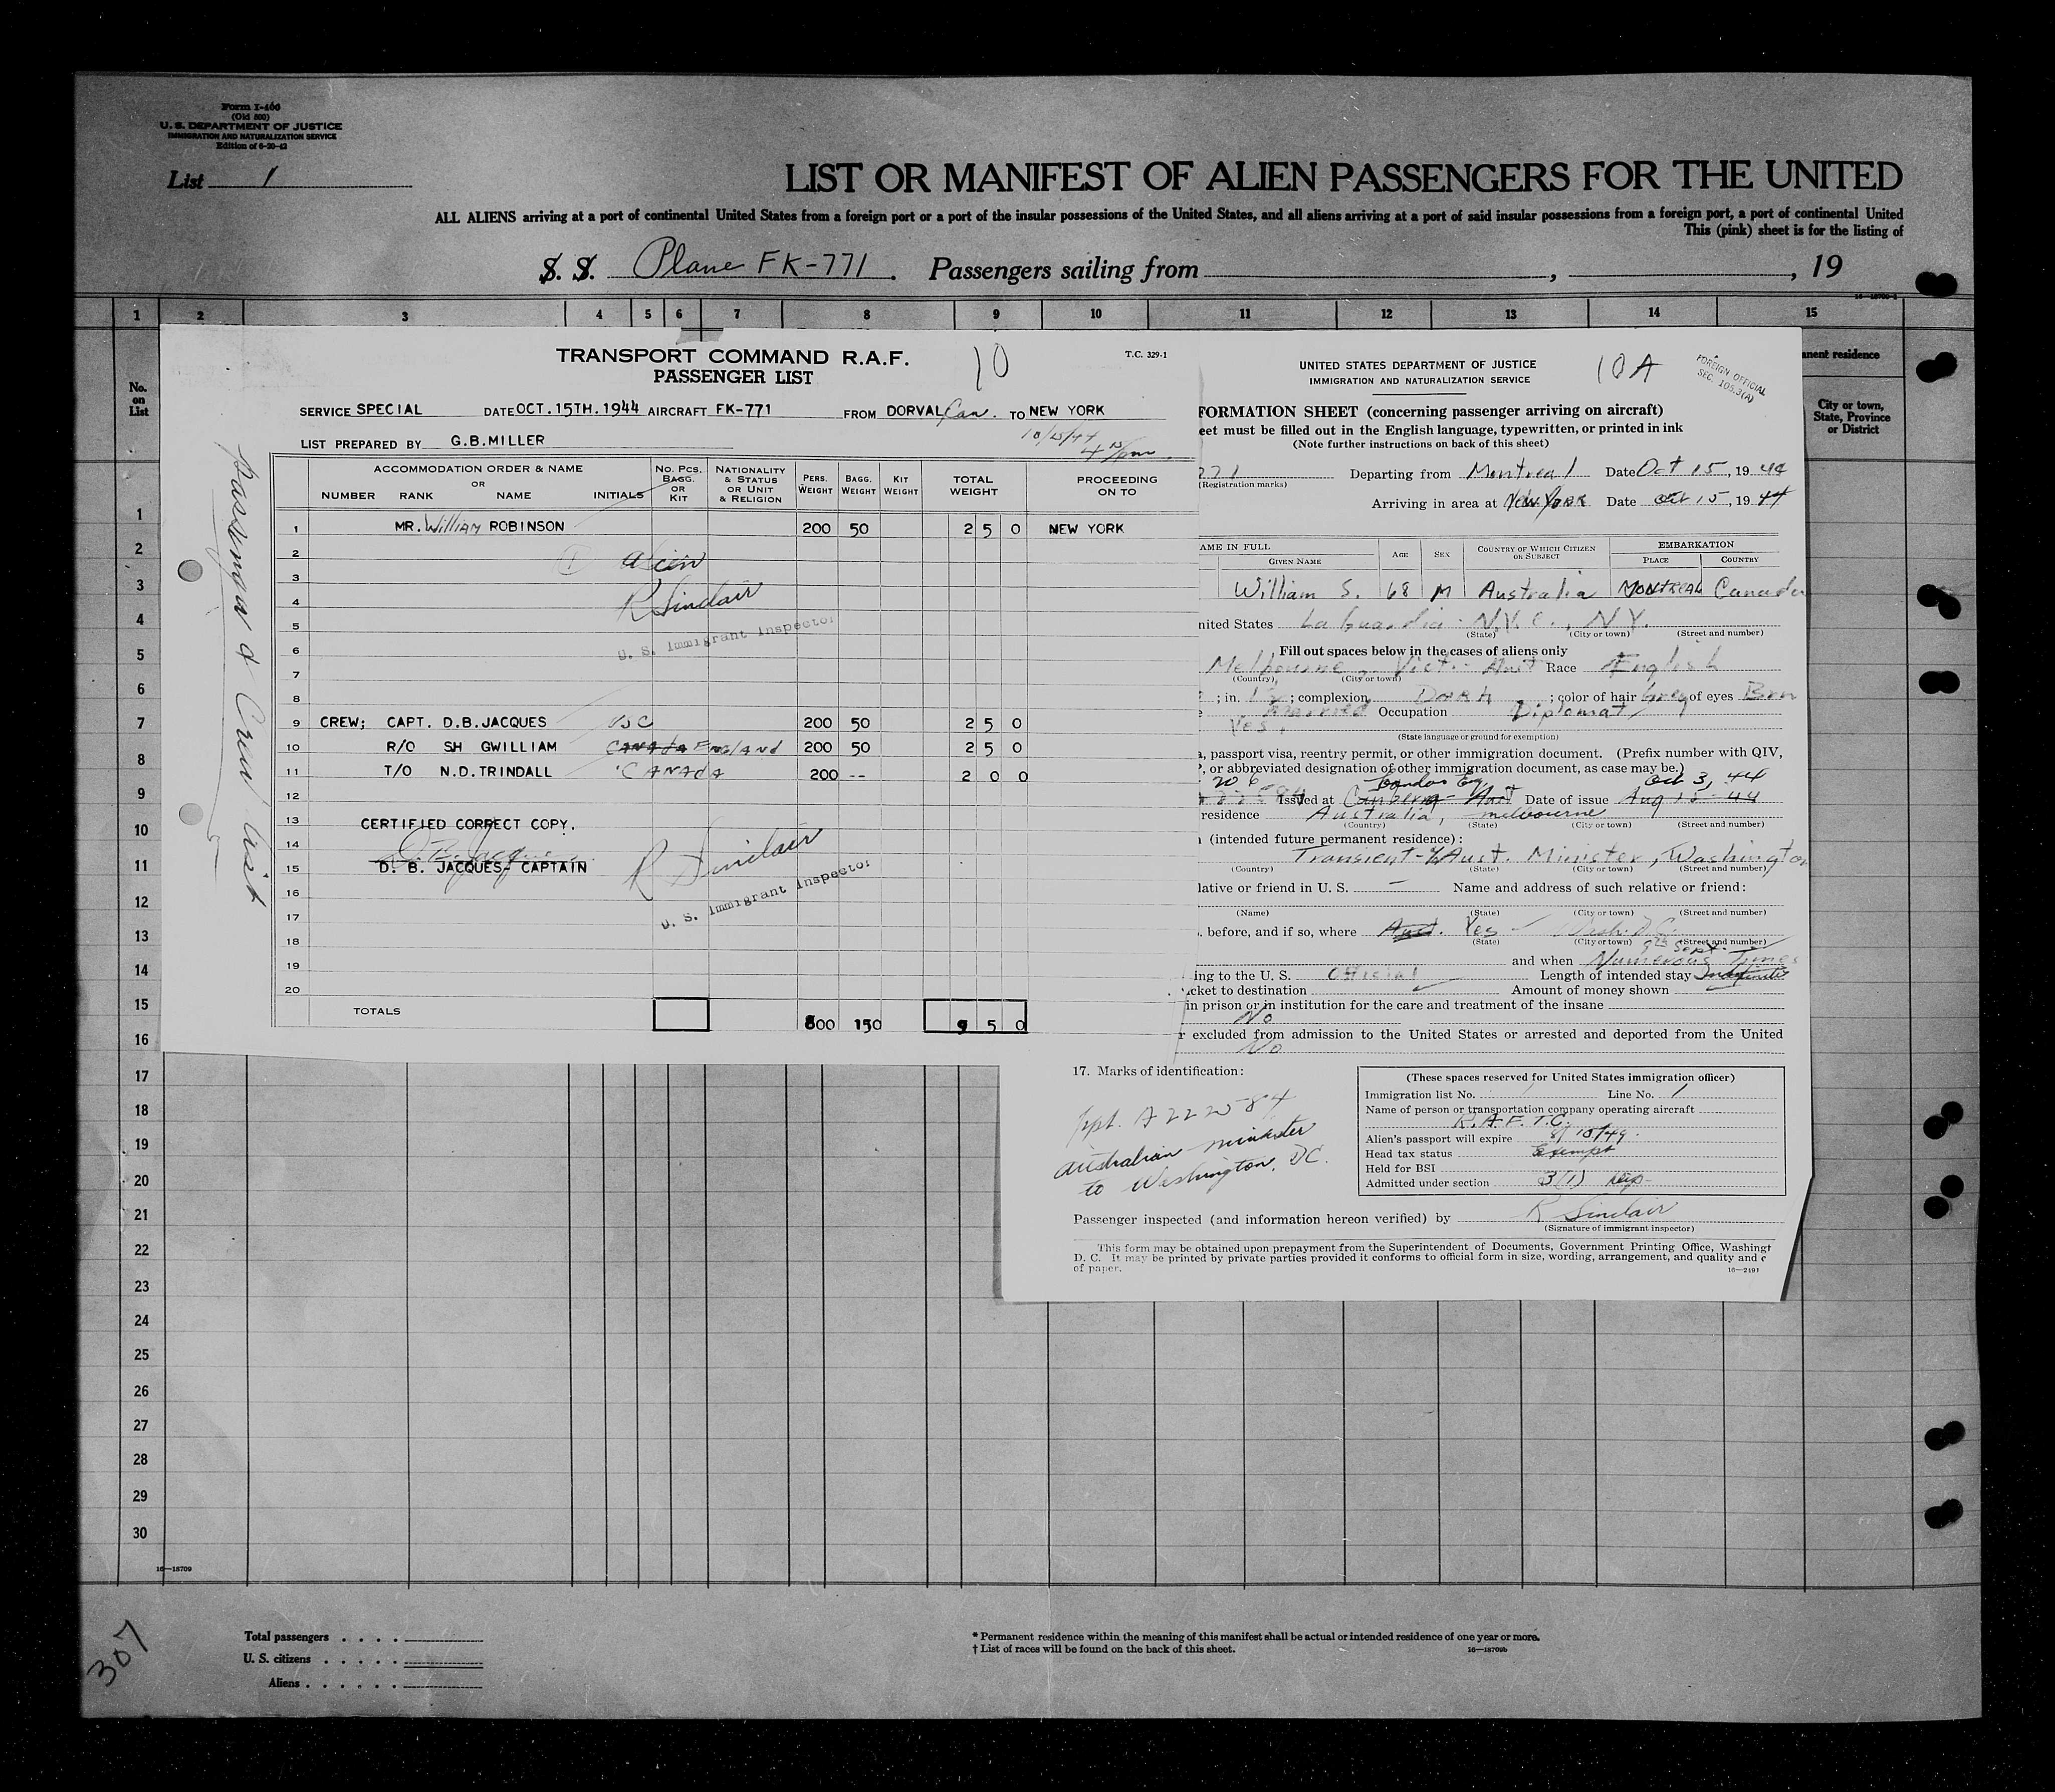 Form I-466
(Old 500)
U. S. DEPARTMENT OF JUSTICE
IMMIGRATION AND NATURALIZATION SERVICE
Edition of 6-20-42
List 1
LIST OR MANIFEST OF ALIEN PASSENGERS FOR THE UNITED
ALL ALIENS arriving at a port of continental United States from a foreign port or a port of the insular possessions of the United States, and all aliens arriving at a port of said insular possessions from a foreign port, a port of continental United
This (pink) sheet is for the listing of
S. S. Plane FK-771. Passengers sailing from , , 19
1 2 3 4 5 6 7 8 9 10 11 12 13 14 15
No. on List
Passenger & Crew List
TRANSPORT COMMAND R.A.F. 10 T.C. 329-1
PASSENGER LIST
SERVICE SPECIAL DATE OCT. 15TH. 1944 AIRCRAFT FK-771 FROM DORVAL Can. TO NEW YORK
10/15/44
LIST PREPARED BY G.B.MILLER 4 15 pm.
ACCOMMODATION ORDER & NAME
OR
NUMBER RANK NAME INITIALS
No. Pcs. BAGG. OR KIT
NATIONALITY & STATUS OR UNIT & RELIGION
PERS. WEIGHT
BAGG. WEIGHT
KIT WEIGHT
TOTAL WEIGHT
PROCEEDING ON TO
1 MR. William ROBINSON 200 50 2 5 0 NEW YORK
2 (1) alien
3
4 R Sinclair
5 U. S. Immigrant Inspector
6
7
8
9 CREW; CAPT. D.B.JACQUES USC 200 50 2 5 0
10 R/O SH GWILLIAM CANADA ENGLAND 200 50 2 5 0
11 T/O N.D.TRINDALL CANADA 200 -- 2 0 0
12
13 CERTIFIED CORRECT COPY.
14 D. B. Jacques
15 D. B. JACQUES- CAPTAIN R Sinclair
16 U. S. Immigrant Inspector
17
18
19
20
TOTALS 800 150 9 5 0
UNITED STATES DEPARTMENT OF JUSTICE 10A
IMMIGRATION AND NATURALIZATION SERVICE
FOREIGN OFFICIAL
SEC. 105.3(A)
FORMATION SHEET (concerning passenger arriving on aircraft)
eet must be filled out in the English language, typewritten, or printed in ink
(Note further instructions on back of this sheet)
771 Departing from Montreal Date Oct 15, 19 44
(Registration marks)
Arriving in area at New York Date Oct 15, 19 44
AME IN FULL
GIVEN NAME
AGE SEX COUNTRY OF WHICH CITIZEN OR SUBJECT
EMBARKATION
PLACE COUNTRY
William S. 68 M Australia MONTREAL Canada
nited States La Guardia - N.Y.C., N.Y.
(State) (City or town) (Street and number)
Fill out spaces below in the cases of aliens only
Melbourne, Vict. Aust Race English
(Country) (City or town)
; in. ; complexion Dark ; color of hair Grey of eyes Brn
Married Occupation Diplomat
Yes.
(State language or ground for exemption)
, passport visa, reentry permit, or other immigration document. (Prefix number with QIV,
, or abbreviated designation of other immigration document, as case may be.)
206 London Eng Oct 3, 44
Issued at Canberra - Aust Date of issue Aug 15-44
residence Australia, Melbourne
(Country) (State) (City or town) (Street and number)
(intended future permanent residence):
Transient - % Aust. Minister, Washington
(Country) (State) (City or town) (Street and number)
lative or friend in U. S. — Name and address of such relative or friend:
(Name) (State) (City or town) (Street and number)
. before, and if so, where Aust. Yes Wash. D.C.
(State) (City or town) (Street and number)
and when Numerous Times
ing to the U. S. Official Length of intended stay Indefinite
icket to destination Amount of money shown
in prison or in institution for the care and treatment of the insane
No
r excluded from admission to the United States or arrested and deported from the United
No
17. Marks of identification:
ppt. A 222584
Australian minister
to Washington, DC.
(These spaces reserved for United States immigration officer)
Immigration list No. 1 Line No. 1
Name of person or transportation company operating aircraft
R.A.F.T.C.
Alien's passport will expire 8/15/49.
Head tax status Exempt
Held for BSI
Admitted under section 3(1)
Passenger inspected (and information hereon verified) by R Sinclair
(Signature of immigrant inspector)
This form may be obtained upon prepayment from the Superintendent of Documents, Government Printing Office, Washingt
D. C. It may be printed by private parties provided it conforms to official form in size, wording, arrangement, and quality and c
of paper.
16—2491
anent residence
City or town,
State, Province
or District
1
2
3
4
5
6
7
8
9
10
11
12
13
14
15
16
17
18
19
20
21
22
23
24
25
26
27
28
29
30
16—18709
307
Total passengers . . . .
U. S. citizens . . . . .
Aliens . . . . . .
* Permanent residence within the meaning of this manifest shall be actual or intended residence of one year or more.
† List of races will be found on the back of this sheet.
16—18709b